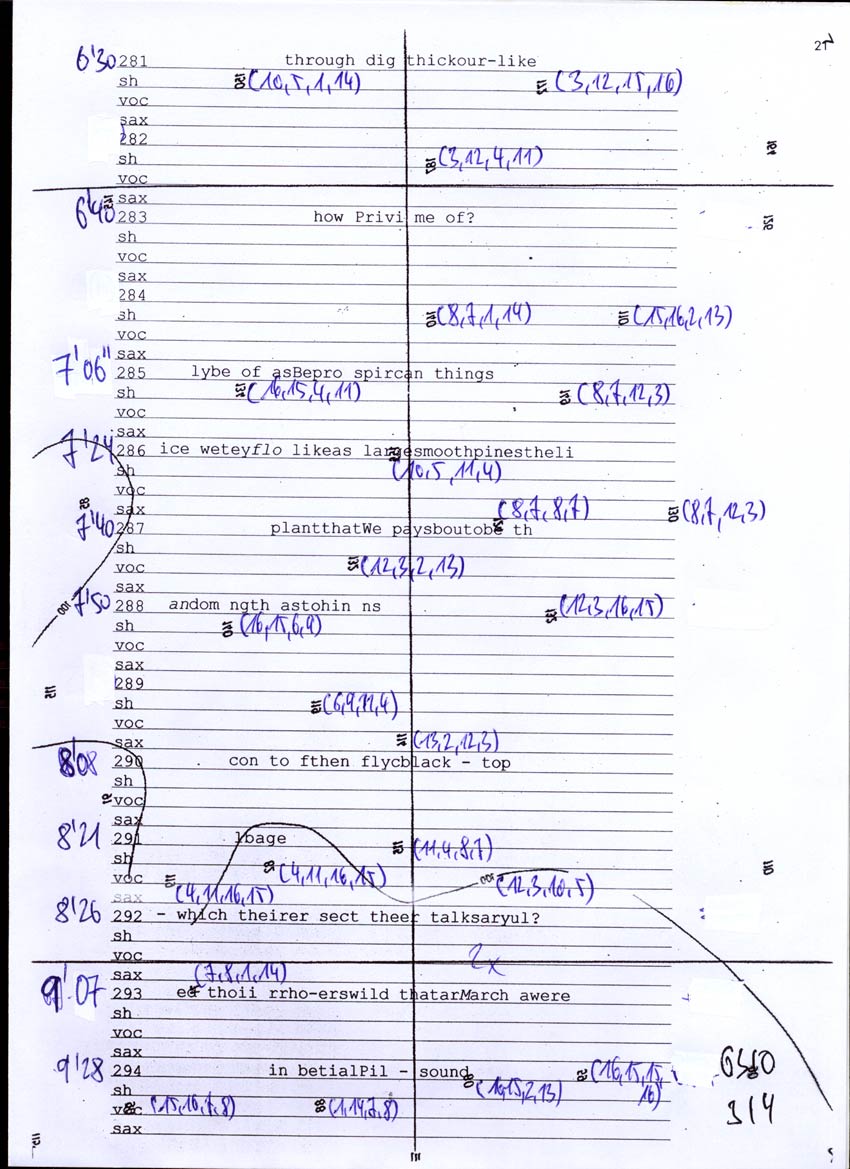 27
6'30 281 through dig thickour-like
sh (10,5,1,14) (3,12,15,16)
voc
sax
282
sh (3,12,4,11)
voc
sax
6'40 283 how Privi me of?
sh
voc
sax
284
sh (8,7,1,14) (15,16,2,13)
voc
sax
7'06" 285 lybe of asBepro spircan things
sh (16,15,4,11) (8,7,12,3)
voc
sax
7'24 286 ice weteyflo likeas largesmoothpinestheli
sh (10,5,11,4)
voc
sax (8,7,8,7) (8,7,12,3)
7'40 287 plantthatWe paysboutobe th
sh
voc (12,3,2,13)
sax
7'50 288 andom ngth astohin ns (12,3,16,15)
sh (16,15,6,9)
voc
sax
289
sh (6,9,11,4)
voc
sax (13,2,12,3)
8'08 290 con to fthen flycblack - top
sh
voc
sax
8'21 291 lbage (11,4,8,7)
sh
voc (4,11,16,15) (12,3,10,5)
sax (4,11,16,15)
8'26 292 - which theirer sect theer talksaryul?
sh
voc 2x
sax (7,8,1,14)
9'07 293 ef thoii rrho-erswild thatarMarch awere
sh
voc
sax
9'28 294 in betialPil - sound (16,15,15,16)
sh (16,15,2,13)
voc (15,16,7,8) (1,14,7,8)
sax
314